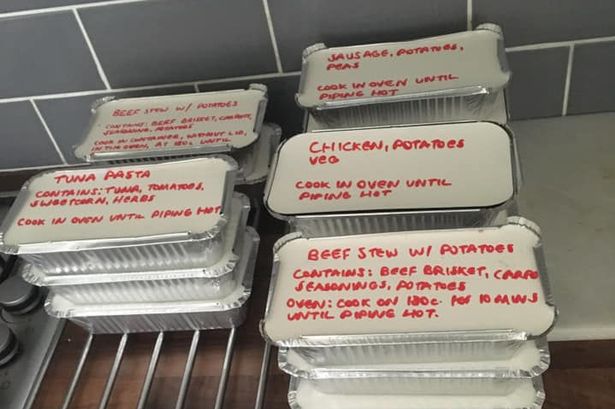 SAUSAGE, POTATOES,
PEAS
COOK IN OVEN UNTIL
PIPING HOT
BEEF STEW W/ POTATOES
CONTAINS: BEEF BRISKET, CARROT,
SEASONING, POTATOES
COOK IN CONTAINER, WITHOUT LID,
IN THE OVEN, AT 180C UNTIL
CHICKEN, POTATOES
VEG
COOK IN OVEN UNTIL
PIPING HOT
TUNA PASTA
CONTAINS: TUNA, TOMATOES,
SWEETCORN, HERBS
COOK IN OVEN UNTIL PIPING HOT
BEEF STEW W/ POTATOES
CONTAINS: BEEF BRISKET, CARRO
SEASONINGS, POTATOES
OVEN: COOK ON 180c. FOR 10 MINS
UNTIL PIPING HOT.